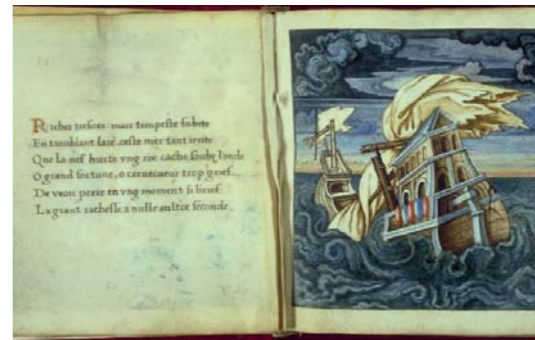 Riches tresors: mais tempeste subite
En troublant faict ceste mer tant irrite
Que la nef hurta vng roc cache soubz l'onde
O grand fortune, o creuecueur trop grief
De veoir perir en vng moment si brief
La grant richesse a nulle aultre seconde.